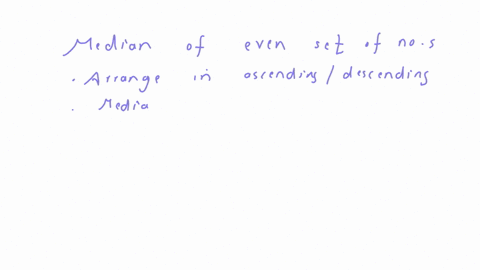 Median of even set of no.s
. Arrange in ascending/descending
. Media